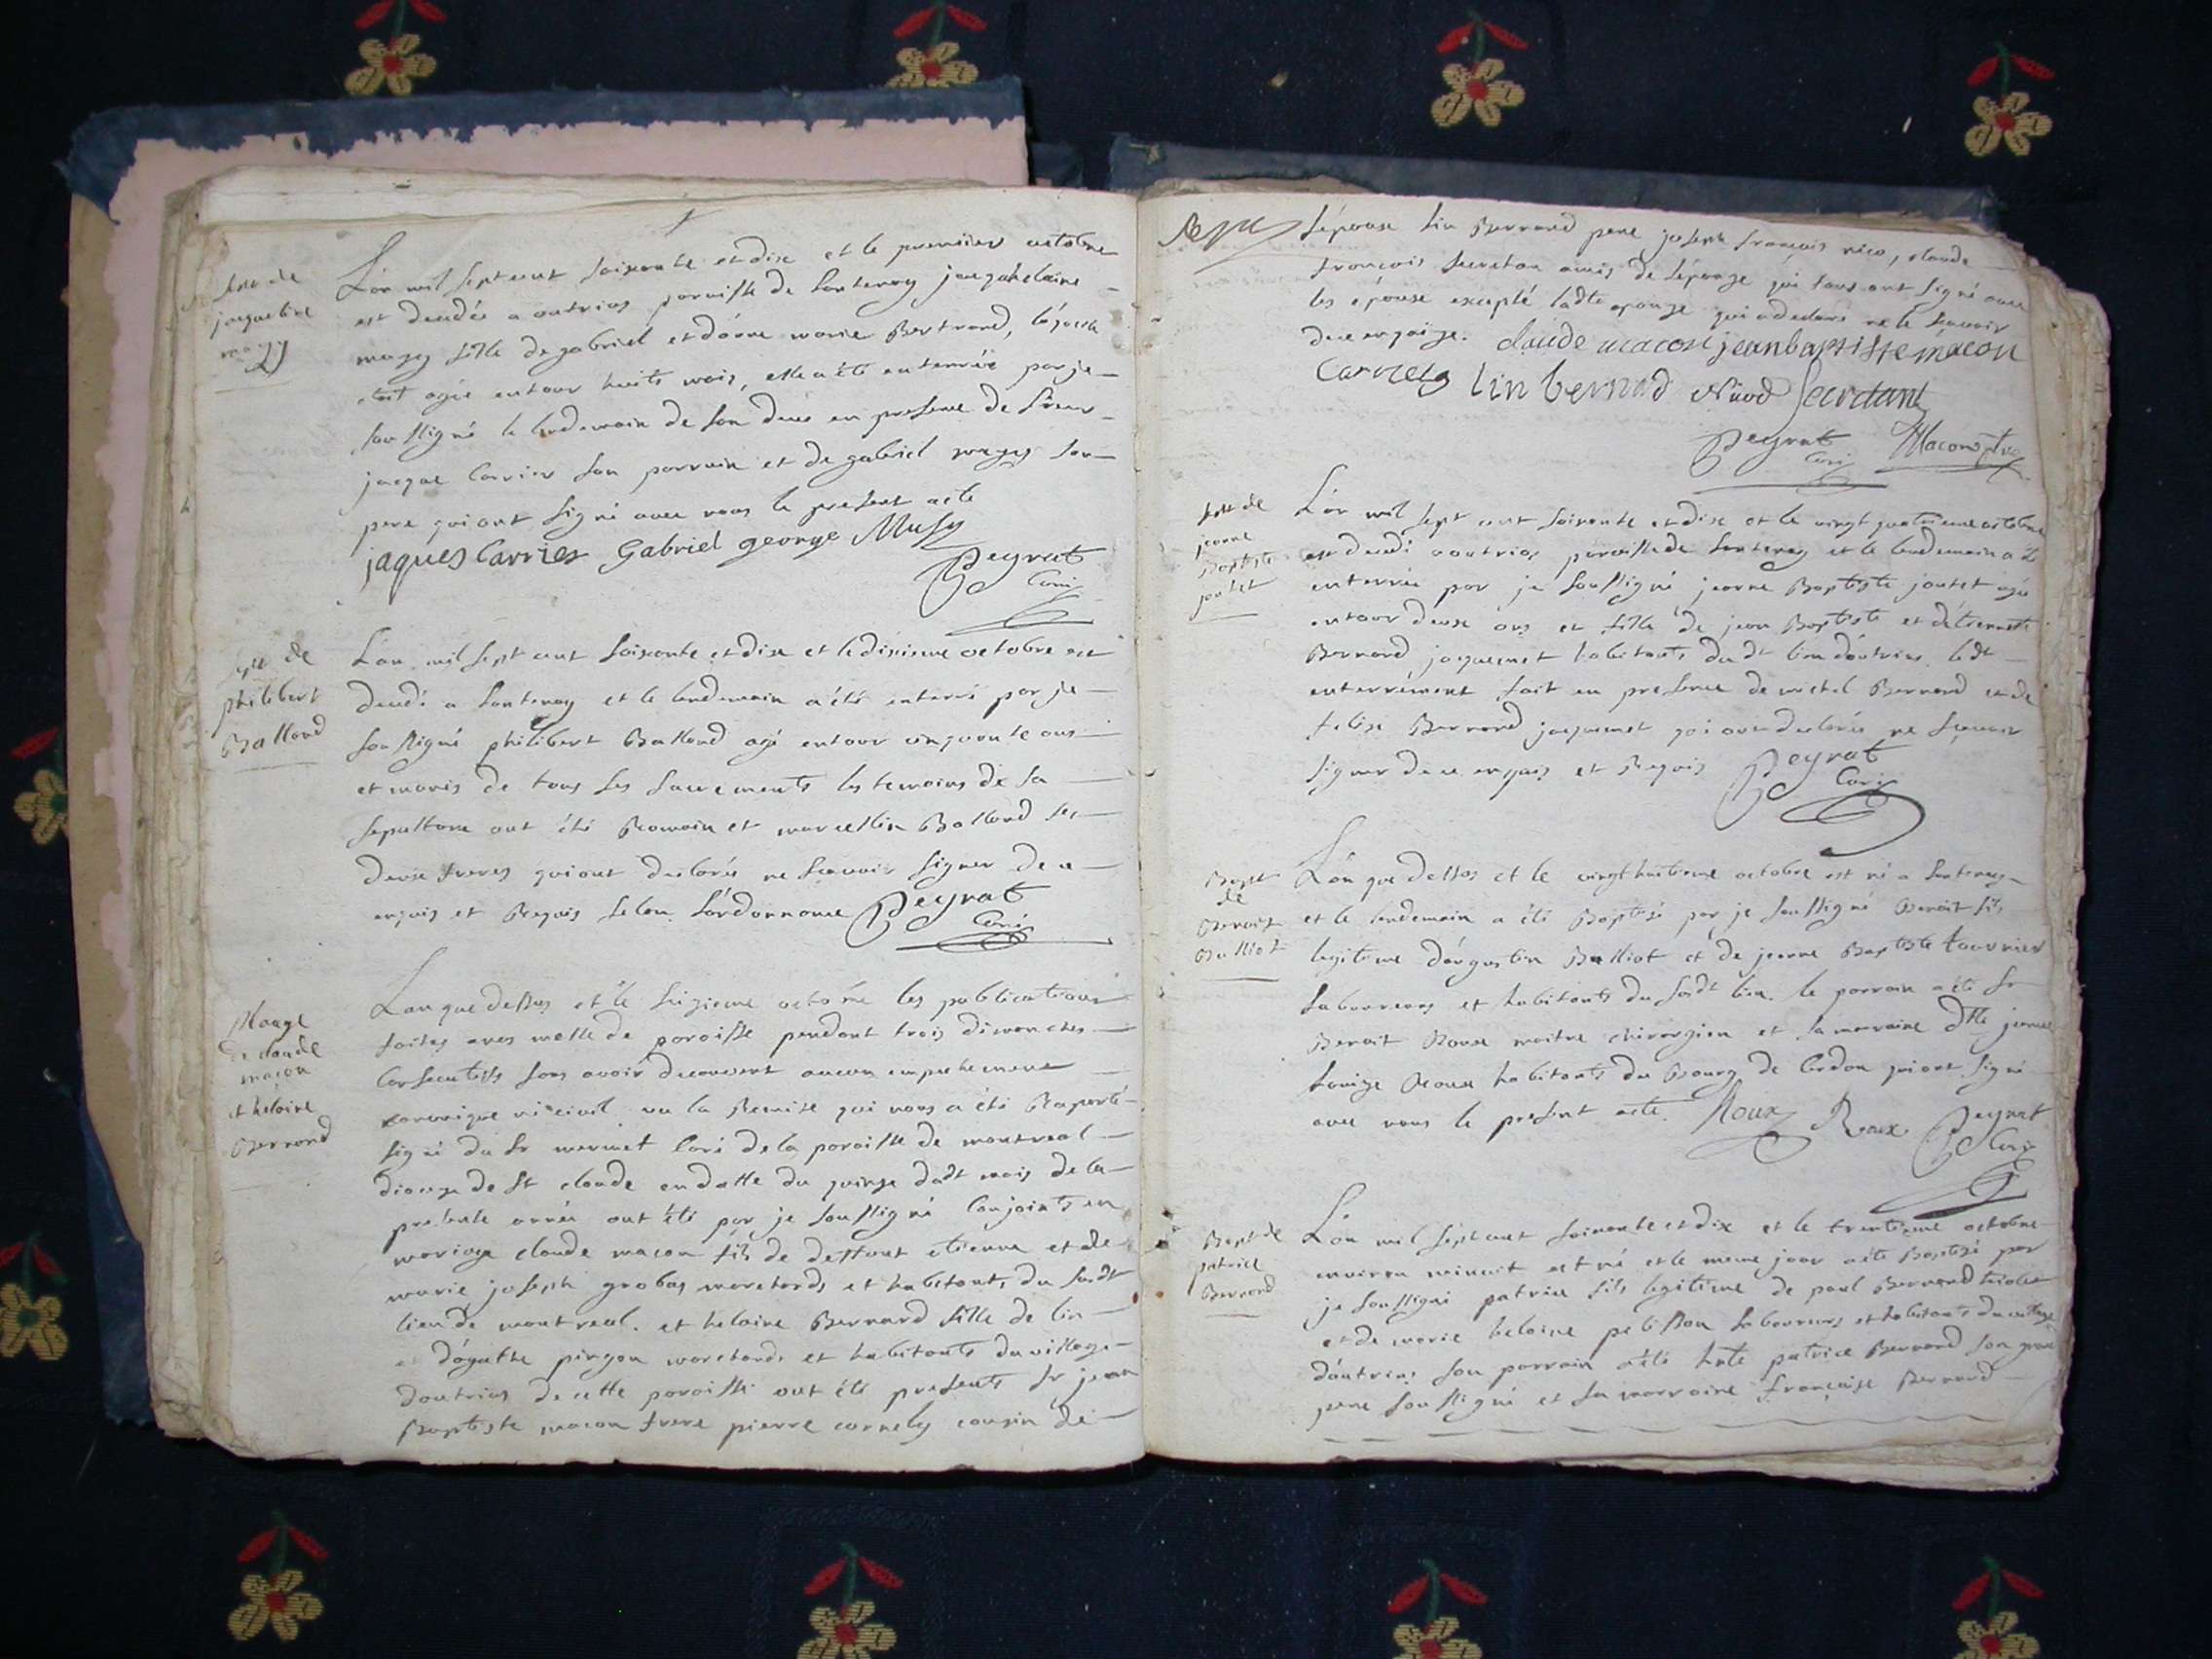 Sept de
jaqueline
mugy
L'an mil sept cent soixante et dix et le premier octobre
est decedée a outrias paroisse de lantenay
mugy fille de gabriel et d'anne marie Bertrand,
etoit agée entour huits mois, elle a été enterrée par je
soussigné le lendemain de son deces en presence de sieur
jacque Carrier son parrain et de gabriel mugy son
pere qui ont signé avec nous le present acte
jaques Carrier Gabriel george Musy
Peyrat
Curé
Sept de
philibert
Balland
L'an mil sept cent soixante et dix et le dixieme octobre est
decedé a lantenay et le lendemain a été enterré par je
soussigné philibert Balland agé entour cinquante ans
et munis de tous ses sacrements les temoins de sa
sepulture ont été Romain et marcellin Balland ses
deux freres qui ont declarés ne scavoir signer de ce
enquis et Requis selon l'ordonnance Peyrat
Curé
Mariage
de claude
maçon
et heleine
Bernard
L'an que dessus et le seizieme octobre les publications
faites a nos messe de paroisse pendant trois dimanches
consecutifs sans avoir decouvert aucun empechement
canonique ni civil vu la Remise qui nous a été Raporté
signé du Sr mermet Curé de la paroisse de montreal
diocese de St claude en datte du quinze dudt mois de la
presente année ont été par je soussigné Conjoints en
mariage claude macon fils de deffunt etienne et de
marie joseph grobas marchands et habitants du susdt
lieu de montreal. et heleine Bernard fille de lin
et d'agathe pingon marchands et habitants du village
doutrias de cette paroisse ont été presents Sr jean
Baptiste macon frere pierre carrely cousin de
l'épouse lin Bernard pere joseph françois nico, claude
françois secretan amis de l'épouse qui tous ont signé avec
les épouse excepté ladte epouse qui a declaré ne le scavoir
de ce enquise. claude macon jeanbaptiste macon
Carrely lin bernard Niiod Secretant
Peyrat
Curé
Macon
Sept de
jeanne
Baptiste
joutet
L'an mil sept cent soixante et dix et le vingt quatrieme octobre
est decedé a outrias paroisse de lantenay et le lendemain a été
enterrée par je soussigné jeanne Baptiste joutet agée
entour deux ans et fille de jean Baptiste et d'etiennette
Bernard jaquemet habitants dudt lieu d'outrias. ledt
enterrément fait en presence de michel Bernard et de
felix Bernard jaquemet qui ont declarés ne scavoir
signer de ce enquis et Requis Peyrat
Curé
Bapt
de
Benoit
Bulliot
L'an que dessus et le vingt huitieme octobre est né a lantenay
et le lendemain a été Baptisé par je soussigné Benoit fils
legitime d'augustin Bulliot et de jeanne Baptiste tournier
laboureurs et habitants du susdt lieu. le parrain a été Sr
Benoit Roux maitre chirurgien et la marraine dlle jeanne
louise Roux habitants du Bourg de Cerdon qui ont signé
avec nous le present acte. Roux Roux Peyrat
Curé
Bapt de
patrice
Bernard
L'an mil sept cent soixante et dix et le trentieme octobre
environ minuit est né et le meme jour a été Baptisé par
je soussigné patrice fils legitime de paul Bernard
et de marie heleine pelisson laboureurs et habitants du village
d'outrias son parrain a été hnte patrice Bernard son grand
pere soussigné et sa marraine françoise Bernard